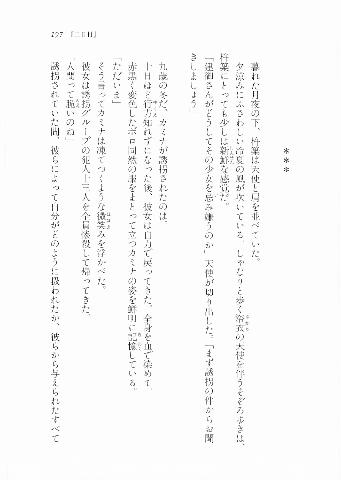 197 『二日目』
＊＊＊
暮れた月夜の下、梓葉は天使と肩を並べていた。
夕涼みにふさわしい冷夏の風が吹いている。しゃなりと歩く浴衣の天使を伴うそぞろ歩きは、
梓葉にとっても少しは新鮮な感覚だ。
「建御さんがどうしてその少女を忌み嫌うのか」天使が切り出した。「まず誘拐の件からお聞
きしましょう」
九歳の冬だ。カミナが誘拐されたのは。
十日ほど行方知れずになった後、彼女は自力で戻ってきた。全身を血で染めて。
赤黒く変色したボロ同然の服をまとって立つカミナの姿を鮮明に記憶している。
「ただいま」
そう言ってカミナは凍てつくような微笑みを浮かべた。
彼女は誘拐グループの犯人十三人を全員惨殺して帰ってきた。
「人間って脆いのね」
誘拐されていた間、彼らによって自分がどのように扱われたか、彼らから与えられたすべて